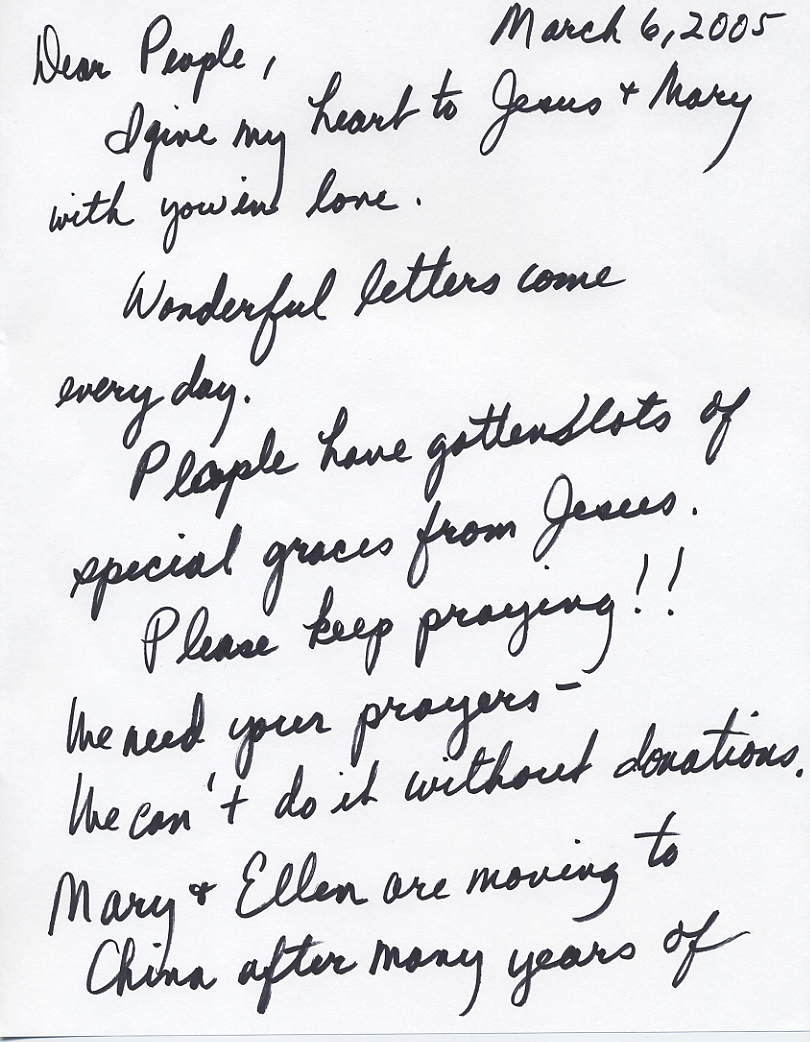 March 6, 2005
Dear People,
I give my heart to Jesus + Mary
with you in love.
Wonderful letters come
every day.
People have gotten lots of
special graces from Jesus.
Please keep praying!!
We need your prayers –
We can't do it without donations.
Mary + Ellen are moving to
China after many years of